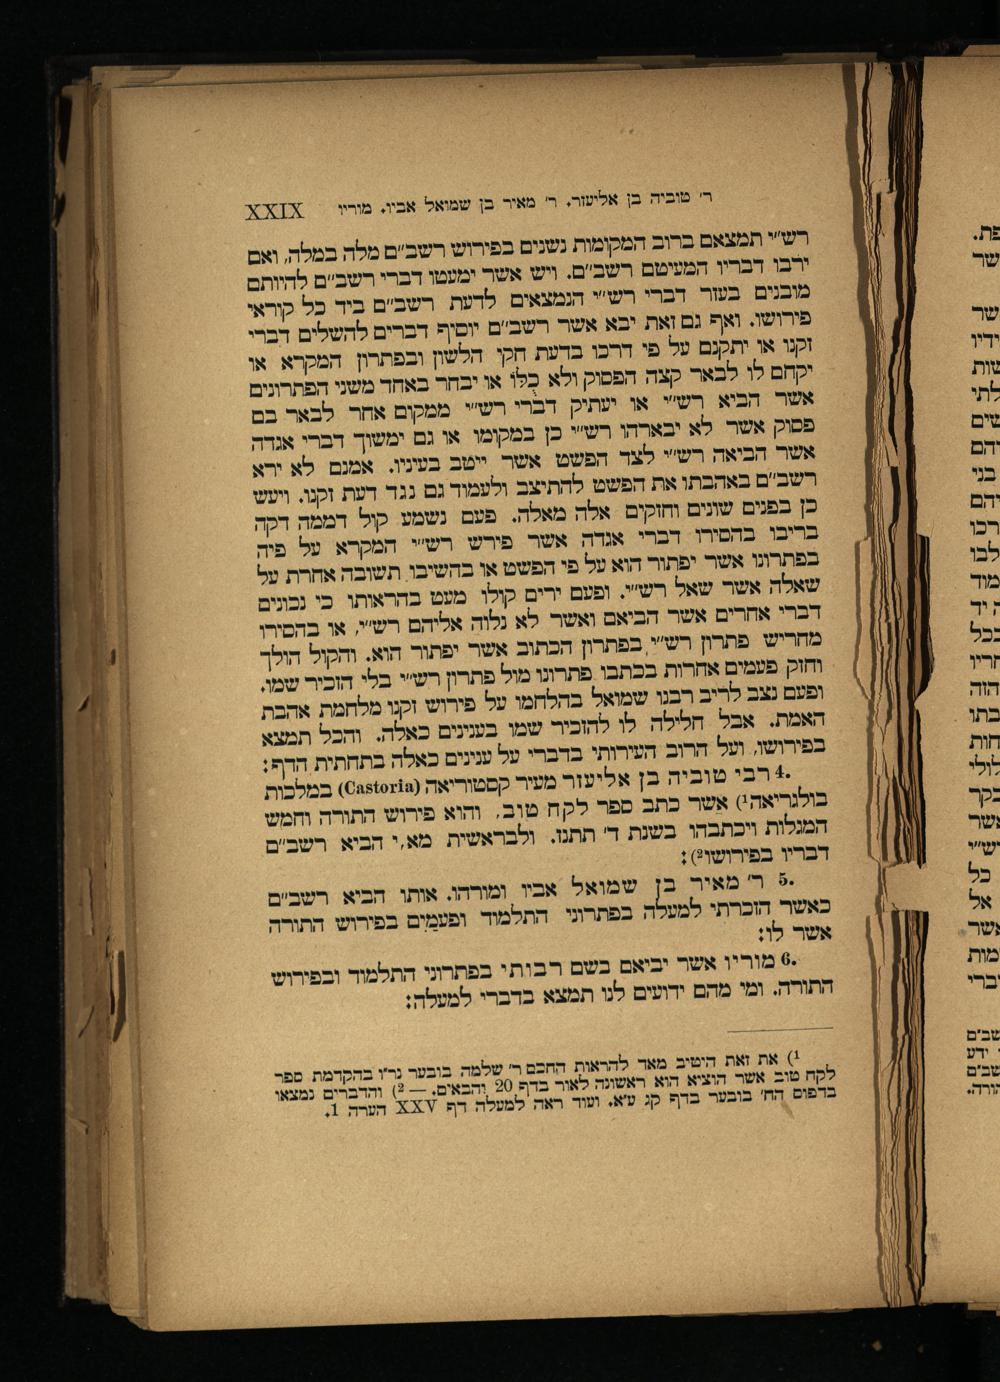 ר׳ טוביה בן אליעזר. ר׳ מאיר בן שמואל אביו. מוריו XXIX
רש״י תמצאם ברוב המקומות נשנים בפירוש רשב״ם מלה במלה, ואם
ירבו דבריו המעיטם רשב״ם. ויש אשר ימעטו דברי רשב״ם להיותם
מובנים בעזר דברי רש״י הנמצאים לדעת רשב״ם ביד כל קוראי
פירושו. ואף גם זאת יבא אשר רשב״ם יוסיף דברים להשלים דברי
זקנו או יתקנם על פי דרכו בדעת חקי הלשון ובפתרון המקרא או
יקחם לו לבאר קצה הפסוק ולא כֻלּוֹ או יבחר באחד משני הפתרונים
אשר הביא רש״י או יעתיק דברי רש״י ממקום אחר לבאר בם
פסוק אשר לא יבארהו רש״י כן במקומו או גם ימשוך דברי אגדה
אשר הביאה רש״י לצד הפשט אשר ייטב בעיניו. אמנם לא ירא
רשב״ם באהבתו את הפשט להתיצב ולעמוד גם נגד דעת זקנו. ויעש
כן בפנים שונים וחזקים אלה מאלה. פעם נשמע קול דממה דקה
בריבו בהסירו דברי אגדה אשר פירש רש״י המקרא על פיה
בפתרונו אשר יפתור הוא על פי הפשט או בהשיבו תשובה אחרת על
שאלה אשר שאל רש״י. ופעם ירים קולו מעט בהראותו כי נכונים
דברי אחרים אשר הביאם ואשר לא נלוה אליהם רש״י, או בהסירו
מחריש פתרון רש״י בפתרון הכתוב אשר יפתור הוא. והקול הולך
וחזק פעמים אחרות בכתבו פתרונו מול פתרון רש״י בלי הזכיר שמו.
ופעם נצב לריב רבנו שמואל בהלחמו על פירוש זקנו מלחמת אהבת
האמת. אבל חלילה לו להזכיר שמו בענינים כאלה. והכל תמצא
בפירושו, ועל הרוב העירותי בדברי על ענינים כאלה בתחתית הדף:
4. רבי טוביה בן אליעזר מעיר קסטוריאה (Castoria) במלכות
בולגריאה¹) אשר כתב ספר לקח טוב, והוא פירוש התורה וחמש
המגלות ויכתבהו בשנת ד׳ תתנז. ולבראשית מא, י הביא רשב״ם
דבריו בפירושו²):
5. ר׳ מאיר בן שמואל אביו ומורהו. אותו הביא רשב״ם
כאשר הזכרתי למעלה בפתרוני התלמוד ופעמַיִם בפירוש התורה
אשר לו:
6. מוריו אשר יביאם בשם רבותי בפתרוני התלמוד ובפירוש
התורה. ומי מהם ידועים לנו תמצא בדברי למעלה:
¹) את זאת היטיב מאד להראות החכם ר׳ שלמה בובער נר״ו בהקדמת ספר
לקח טוב אשר הוציא הוא ראשונה לאור בדף 20 והבא״ם. — ²) והדברים נמצאו
בדפוס הח׳ בובער בדף קג ע״א. ועוד ראה למעלה דף XXV הערה 1.